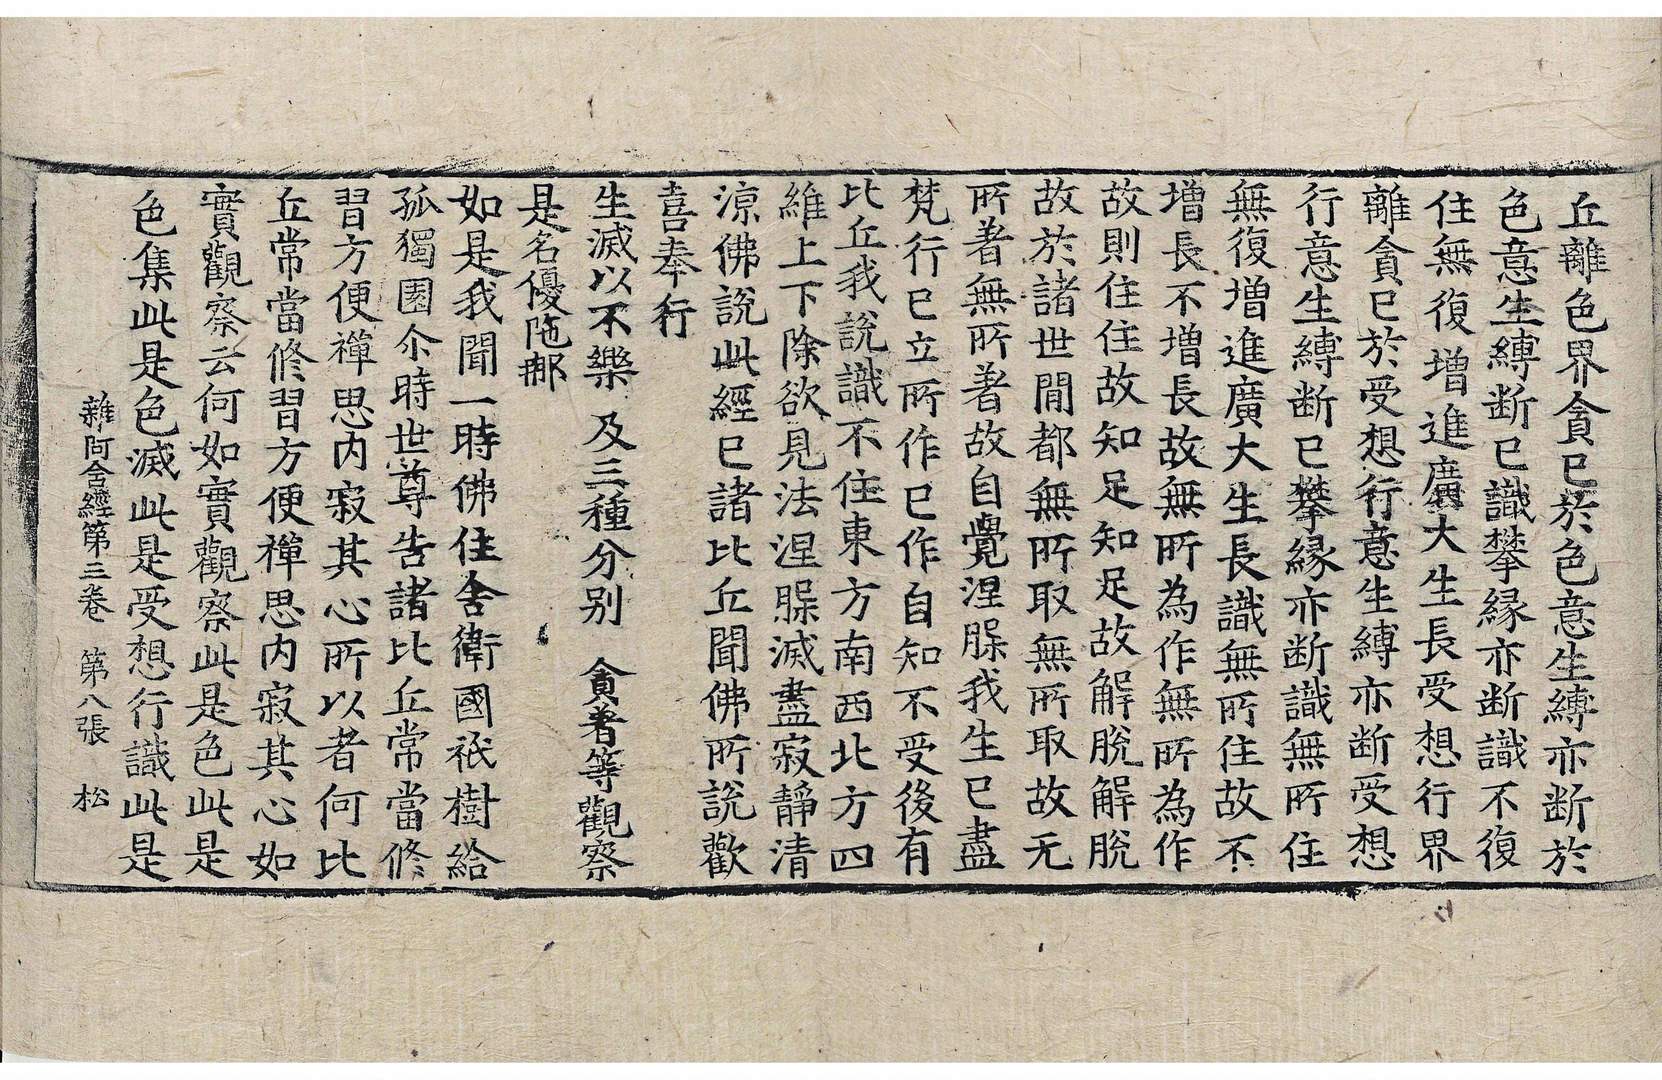 丘離色界貪已於色意生縛亦断於
色意生縛断已識攀縁亦断識不復
住無復增進廣大生長受想行界
離貪已於受想行意生縛亦断受想
行意生縛断已攀縁亦断識無所住
無復增進廣大生長識無所住故不
增長不增長故無所為作無所為作
故則住住故知足知足故解脫解脫
故於諸世間都無所取無所取故无
所著無所著故自覺涅槃我生已盡
梵行已立所作已作自知不受後有
比丘我說識不住東方南西北方四
維上下除欲見法涅槃滅盡寂靜清
涼佛說此經已諸比丘聞佛所說歡
喜奉行
生滅以不樂 及三種分別 貪著等觀察
是名優陁那
如是我聞一時佛住舍衛國祇樹給
孤獨園尒時世尊告諸比丘常當修
習方便禪思内寂其心所以者何比
丘常當修習方便禪思内寂其心如
實觀察云何如實觀察此是色此是
色集此是色滅此是受想行識此是
雜阿含經第三卷 第八張 松